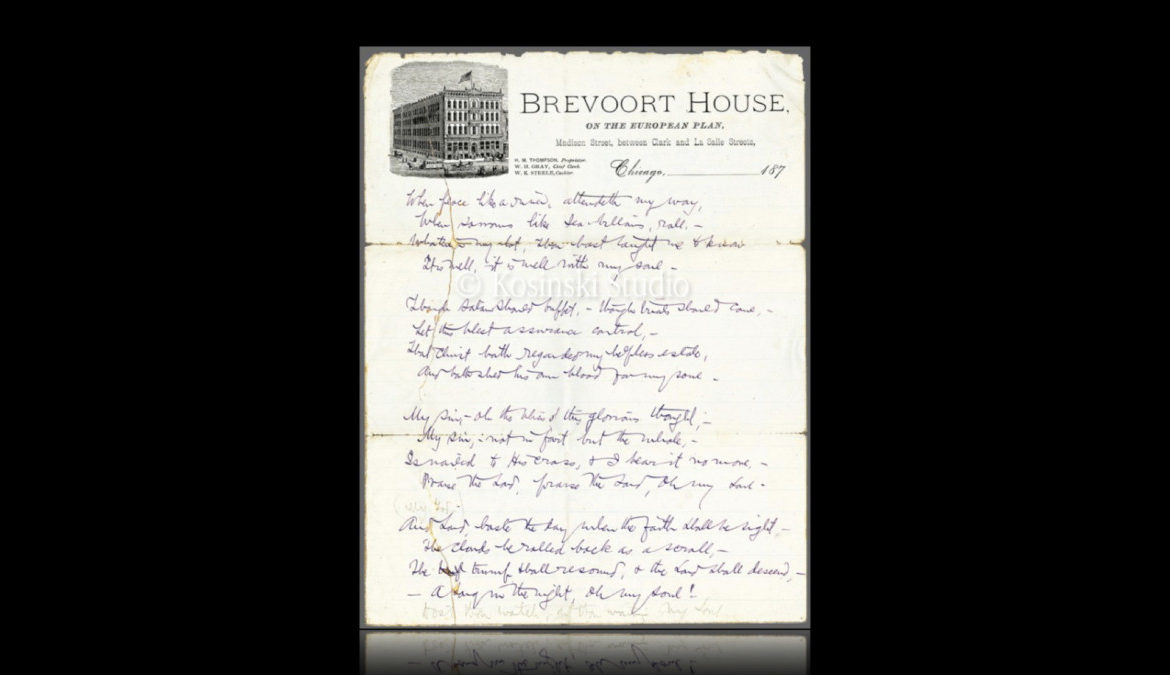 BREVOORT HOUSE,
ON THE EUROPEAN PLAN,
Madison Street, between Clark and La Salle Streets,
H. M. THOMPSON, Proprietor.
W. H. GRAY, Chief Clerk.
W. K. STEELE, Cashier.
Chicago, 187
When peace like a river, attendeth my way,
When sorrows like sea billows, roll, –
Whatever my lot, Thou hast taught me to know
It is well, it is well with my soul –
© Kosinski Studio
Though Satan should buffet, – though trials should come, –
Let this blest assurance control, –
That Christ hath regarded my helpless estate,
And hath shed his own blood for my soul –
My sin, – oh the bliss of this glorious thought, –
My sin, – not in part but the whole, –
Is nailed to His cross, & I bear it no more, –
Praise the Lord, praise the Lord, Oh my Soul –
And Lord, haste the day when the faith shall be sight, –
The clouds be rolled back as a scroll, –
The trump shall resound, & the Lord shall descend, –
– A song in the night, Oh my soul!
my Soul